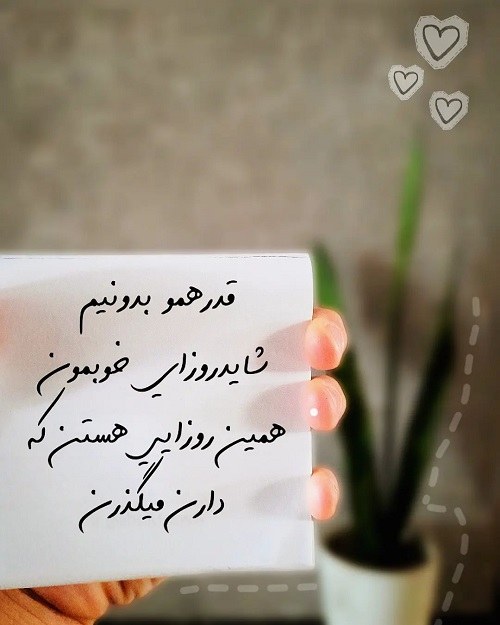 قدر همو بدونیم
شاید روزایی خوبمون
همین روزایی هستن که
دارن میگذرن